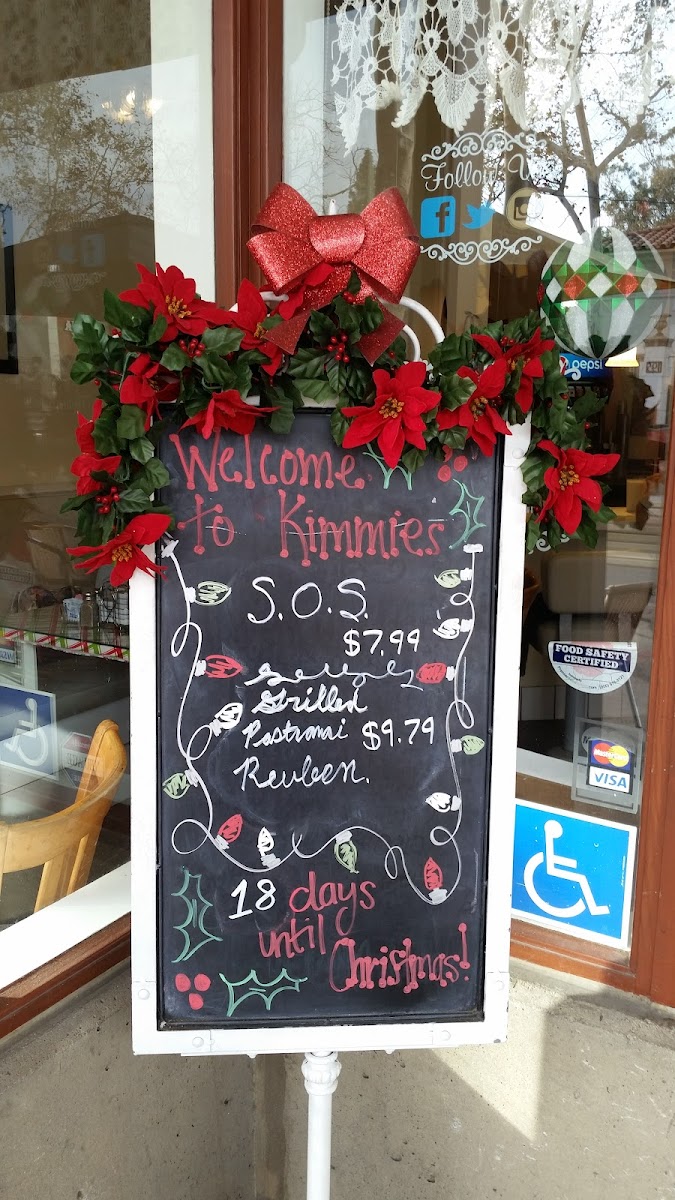 Follow
pepsi
Welcome
to Kimmies
S.O.S.
$7.99
Grillen
Pastramai $9.79
Reuben.
18 days
until
Christmas!
FOOD SAFETY
CERTIFIED
MasterCard
VISA